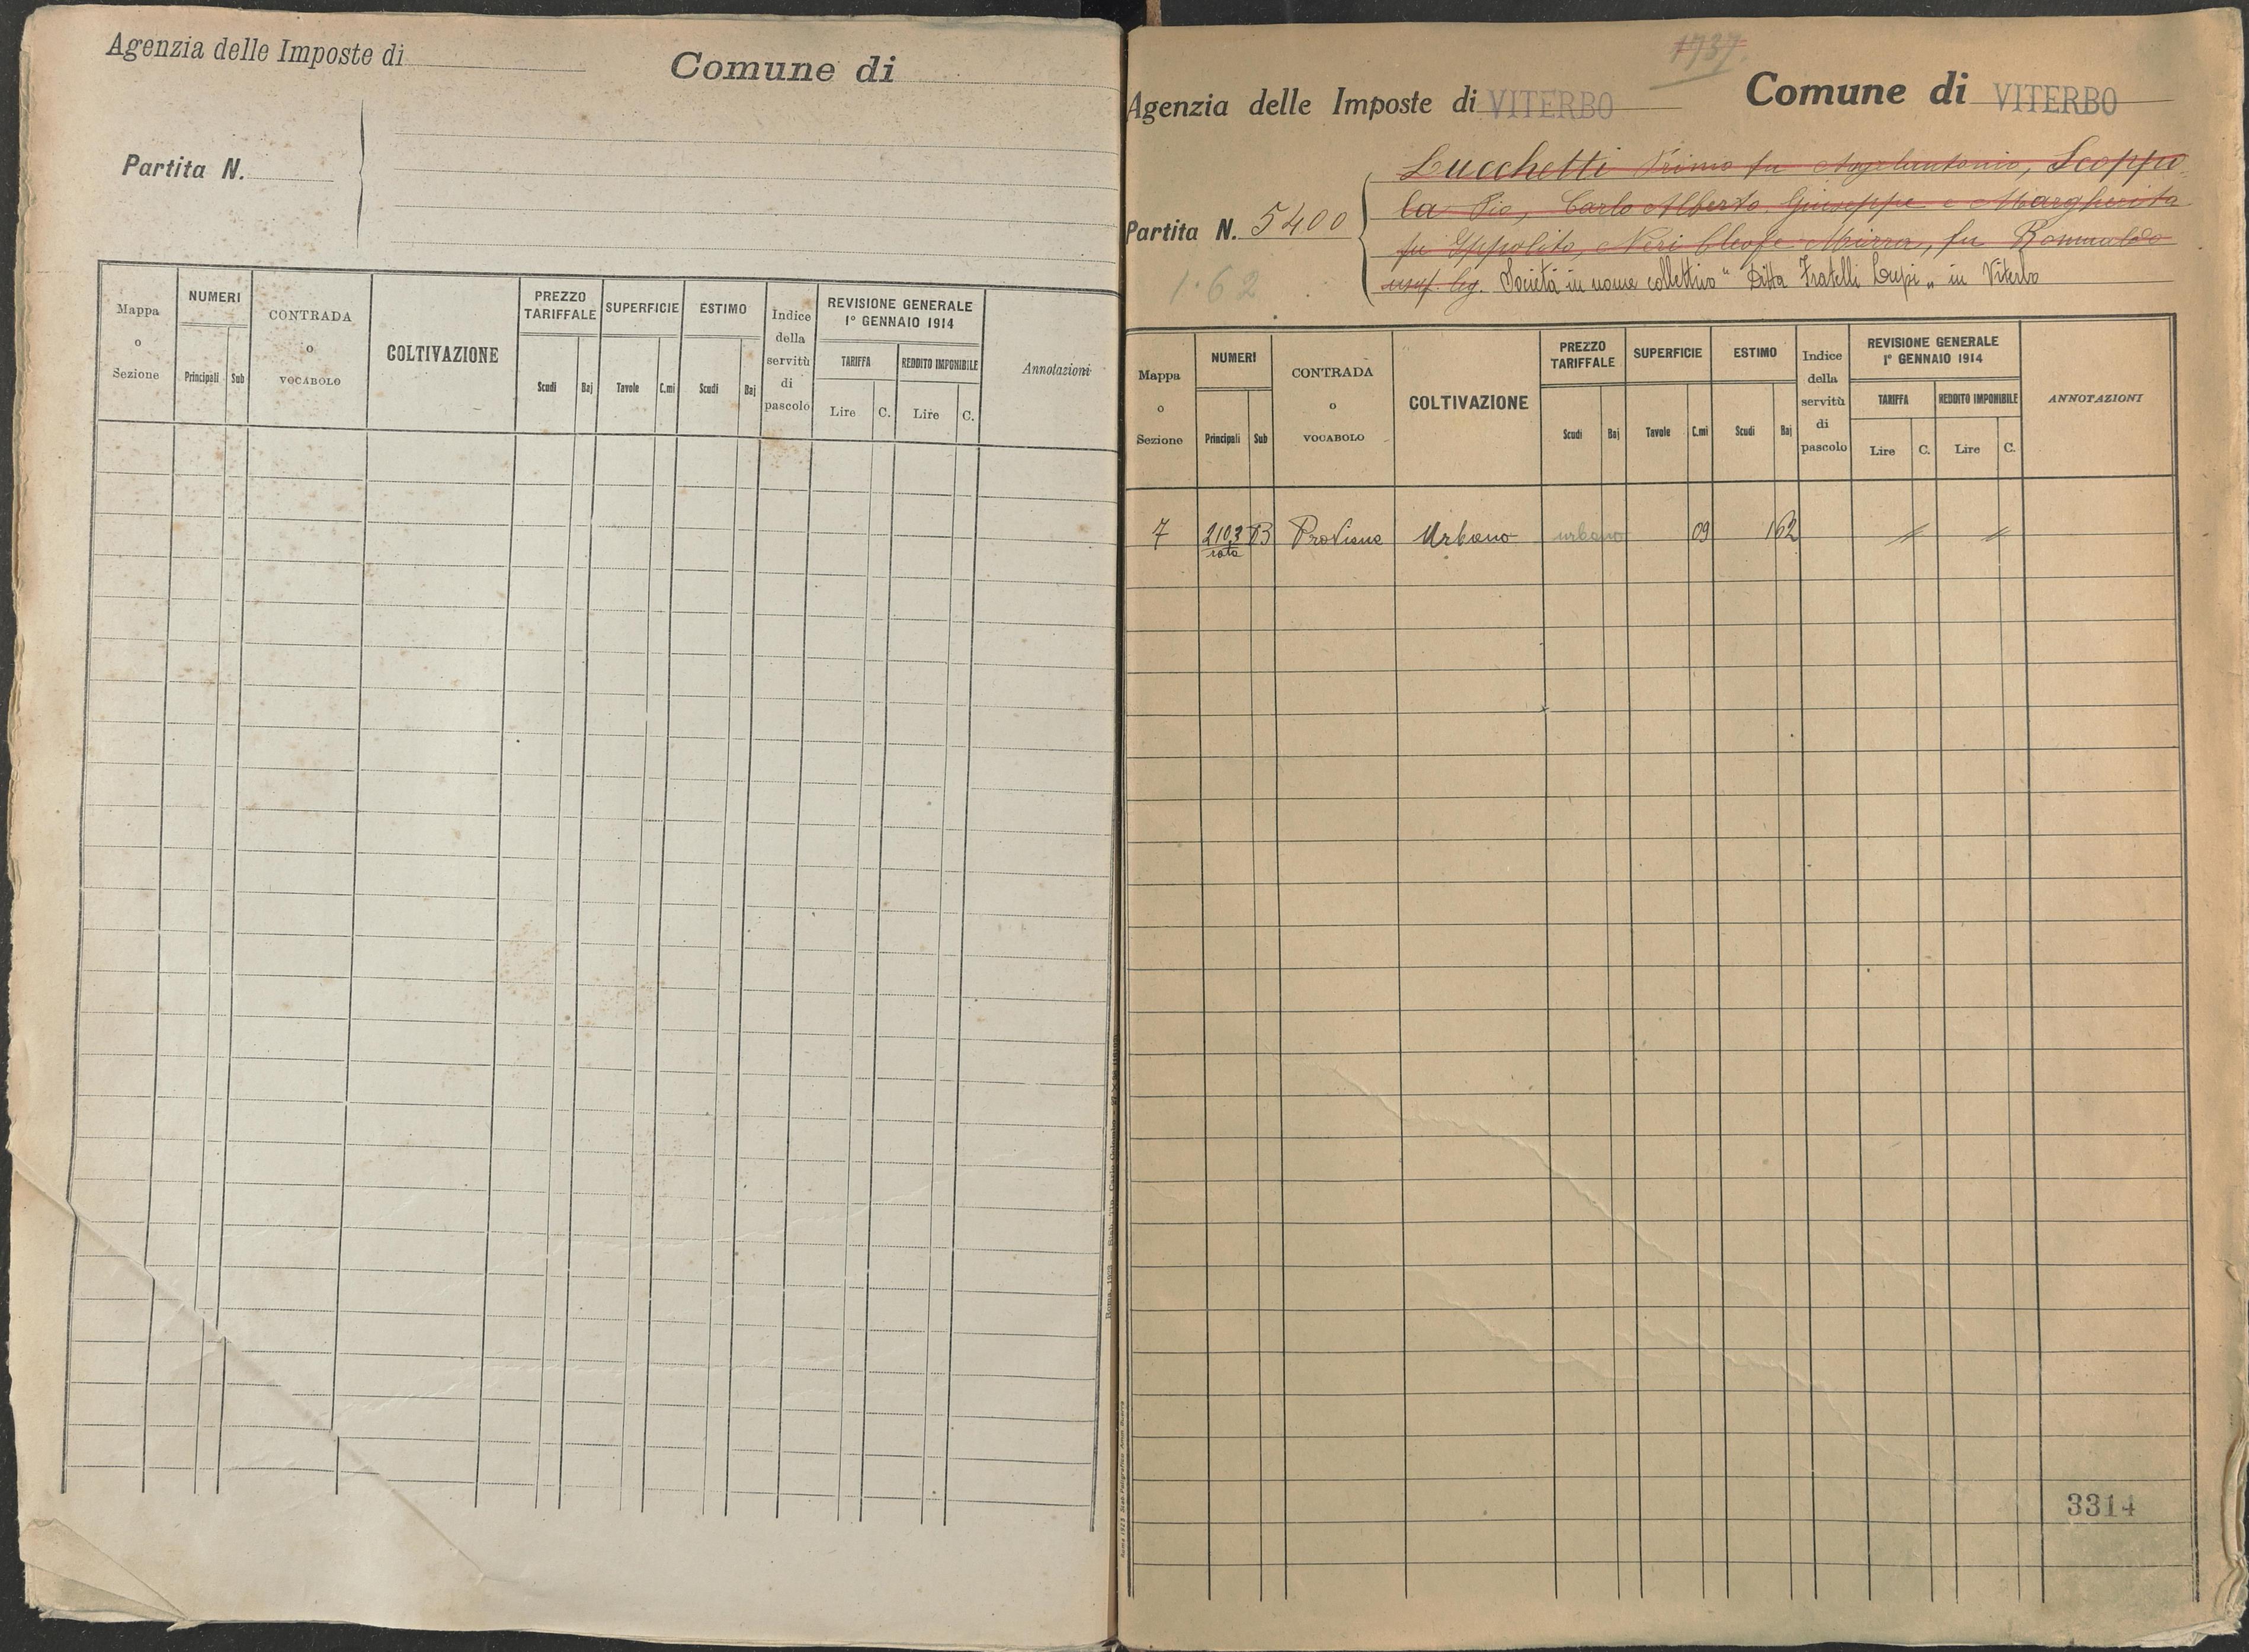 Agenzia delle Imposte di
Comune di
Partita N.
Mappa o Sezione
NUMERI
Principali Sub
CONTRADA o VOCABOLO
COLTIVAZIONE
PREZZO TARIFFALE
Scudi Baj
SUPERFICIE
Tavole C.mi
ESTIMO
Scudi Baj
Indice della servitù di pascolo
REVISIONE GENERALE
1° GENNAIO 1914
TARIFFA
Lire C.
REDDITO IMPONIBILE
Lire C.
Annotazioni
1737
Agenzia delle Imposte di VITERBO
Comune di VITERBO
Partita N. 5400
1.62
Lucchetti Primo fu Angelantonio, Scoppo
la Pio, Carlo Alberto, Giuseppe e Margherita
fu Ippolito, Neri Cleofe fu Romualdo
usuf. leg. Società in nome collettivo "Ditta Fratelli Lupi" in Viterbo
Mappa o Sezione
NUMERI
Principali Sub
CONTRADA o VOCABOLO
COLTIVAZIONE
PREZZO TARIFFALE
Scudi Baj
SUPERFICIE
Tavole C.mi
ESTIMO
Scudi Baj
Indice della servitù di pascolo
REVISIONE GENERALE
1° GENNAIO 1914
TARIFFA
Lire C.
REDDITO IMPONIBILE
Lire C.
ANNOTAZIONI
7 2103 rata B Urbano urbano 09 1 62
3314